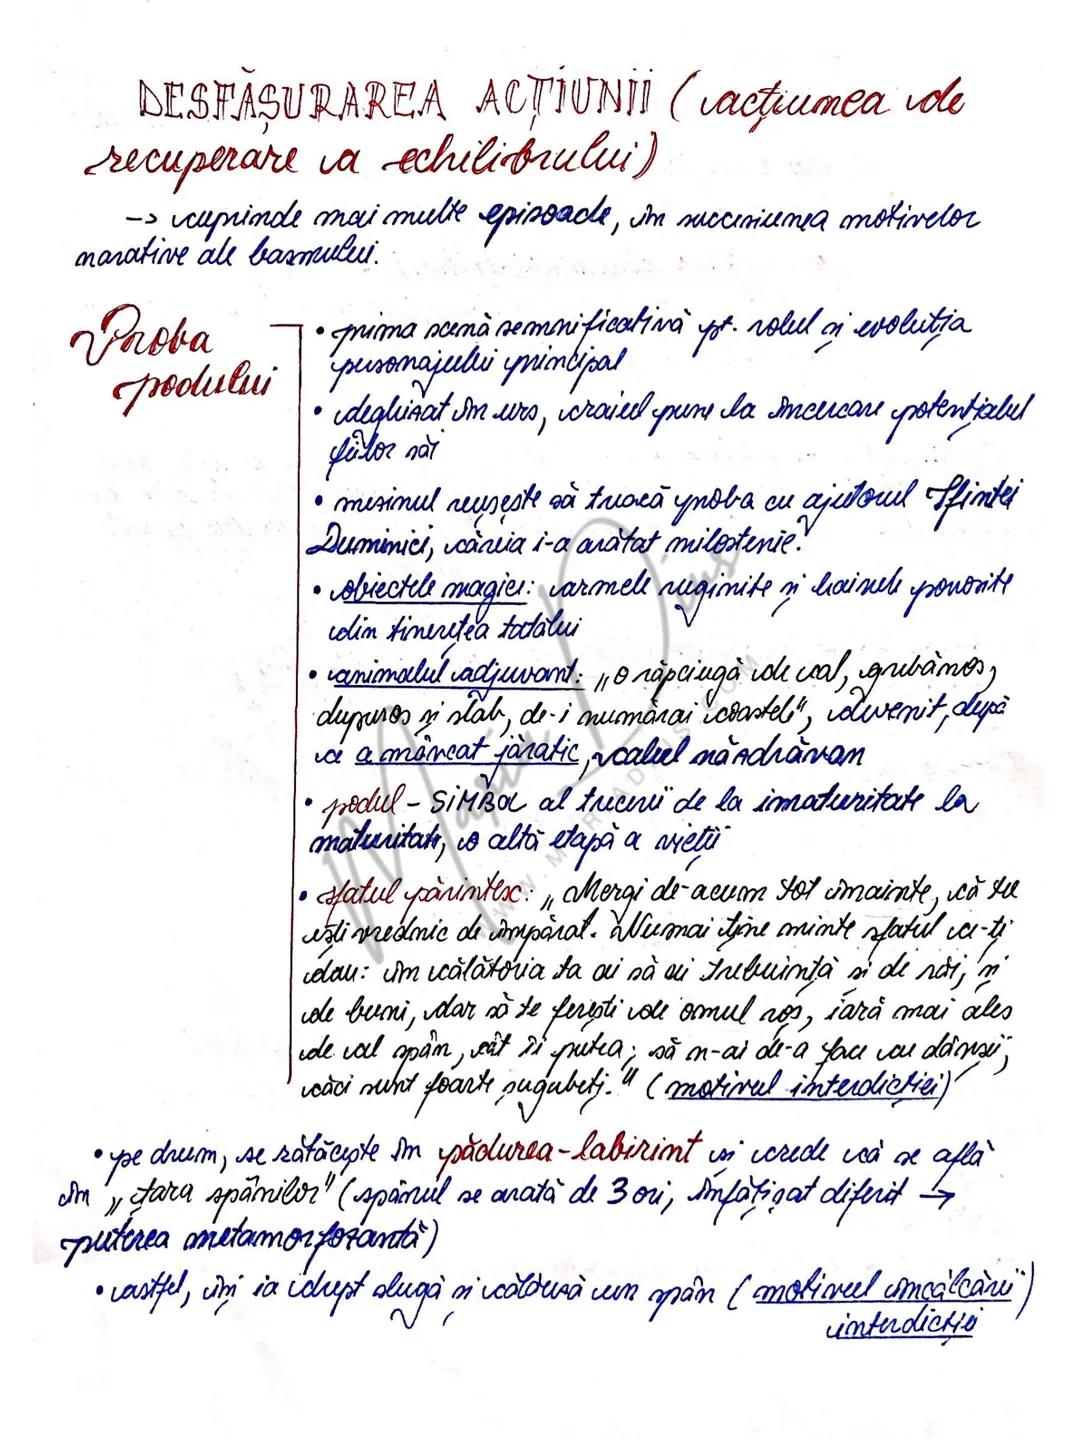 DESFĂȘURAREA ACȚIUNII (acțiunea de
recuperare a echilibrului)
-> cuprinde mai multe episoade, în succesiunea motivelor
narative ale basmului.
Proba
podului
• prima scenă semnificativă pt. rolul și evoluția
personajului principal
• deghizat în urs, craiul pune la încercare potențialul
fiilor săi
• mezinul reușește să treacă proba cu ajutorul Sfintei
Duminici, căreia i-a arătat milostenie.
• obiectele magice: armele ruginite și hainele ponosite
din tinerețea tatălui
• animalul adjuvant: „o răpciugă de cal, grebănos,
dupuros și slab, de-i numărai coastele", devenit, după
ce a mâncat jăratic, calul năzdrăvan
• podul - SIMBOL al trecerii de la imaturitate la
maturitate, o altă etapă a vieții
• sfatul părintesc: „Mergi de-acum tot înainte, că tu
ești vrednic de împărat. Numai ține minte sfatul ce-ți
dau: în călătoria ta ai să ai trebuință și de răi, și
de buni, dar să te ferești de omul roș, iară mai ales
de cel spân, cât îi putea; să n-ai de-a face cu dânșii,
căci sunt foarte șugubeți." (motivul interdicției)
• pe drum, se rătăcește în pădurea-labirint și crede că se află
în „țara spânilor" (spânul se arată de 3 ori, înfățișat diferit →
puterea metamorfozantă)
• astfel, își ia drept slugă și călăuză un spân (motivul încălcării)
interdicției